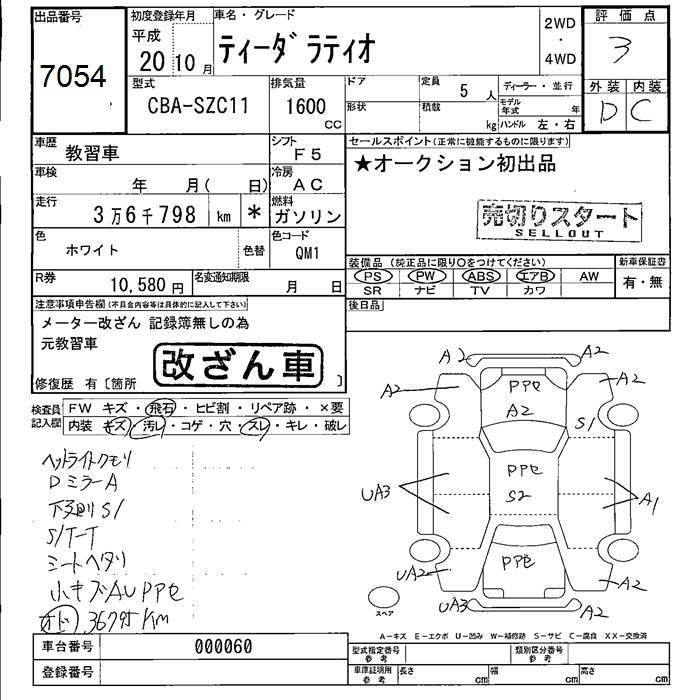 出品番号
7054
初度登録年月
平成
20 10 月
車名・グレード
ティーダ ラティオ
2WD
・
4WD
評価点
3
外装 内装
D C
型式
CBA-SZC11
排気量
1600
CC
ドア
形状
定員
5 人
積載
kg
ディーラー・並行
モデル年式 年
ハンドル 左・右
車歴
教習車
シフト
F5
車検
年 月( 日)
冷房
AC
走行
3万6千798 km *
燃料
ガソリン
色
ホワイト
色替
色コード
QM1
R券
10,580 円
名変通知期限
月 日
セールスポイント(正常に機能するものに限ります)
★オークション初出品
売切りスタート
SELLOUT
装備品(純正品に限り○をつけてください)
PS PW ABS エアB AW
SR ナビ TV カワ
新車保証書
有・無
後日品
注意事項申告欄(不具合内容等は具体的に記入して下さい)
メーター改ざん 記録簿無しの為
元教習車
改ざん車
修復歴 有〔箇所 〕
検査員
記入欄
FW キズ・飛石・ヒビ割・リペア跡・×要
内装 キズ・汚レ・コゲ・穴・スレ・キレ・破レ
ヘットライトクモリ
DミラーA
下廻りS1
S/T-T
シートヘタリ
小キズAU PPセ
オド 36795Km
A2 A2
A2 PPセ A2
A2 S1
UA3 PPセ A1
S2
PPセ
UA2 A2
UA3 A2
スペア
A-キズ E-エクボ U-凹み W-補修跡 S-サビ C-腐食 XX-交換済
車台番号
000060
登録番号
型式指定番号
参考
類別区分番号
参考
車庫証明用
参考
長さ cm 幅 cm 高さ cm